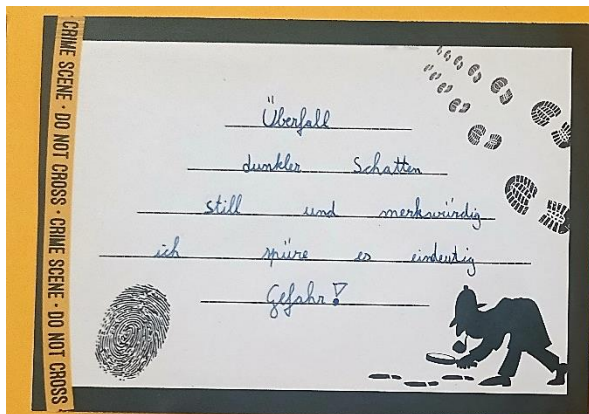 CRIME SCENE · DO NOT CROSS · CRIME SCENE · DO NOT CROSS
Überfall
dunkler Schatten
still und merkwürdig
ich spüre es eindeutig
Gefahr!